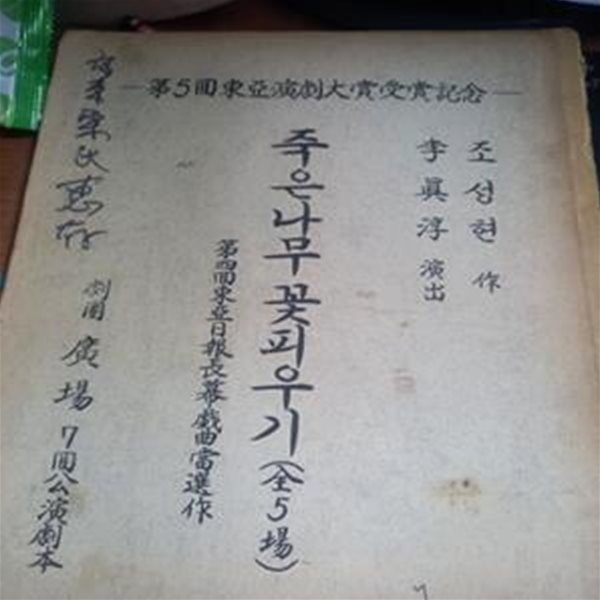 第5回東亞演劇大賞受賞記念
조성현 作
李眞淳 演出
죽은나무꽃피우기(全5場)
第四回東亞日報長幕戱曲當選作
劇団 廣場 7回公演劇本
惠存